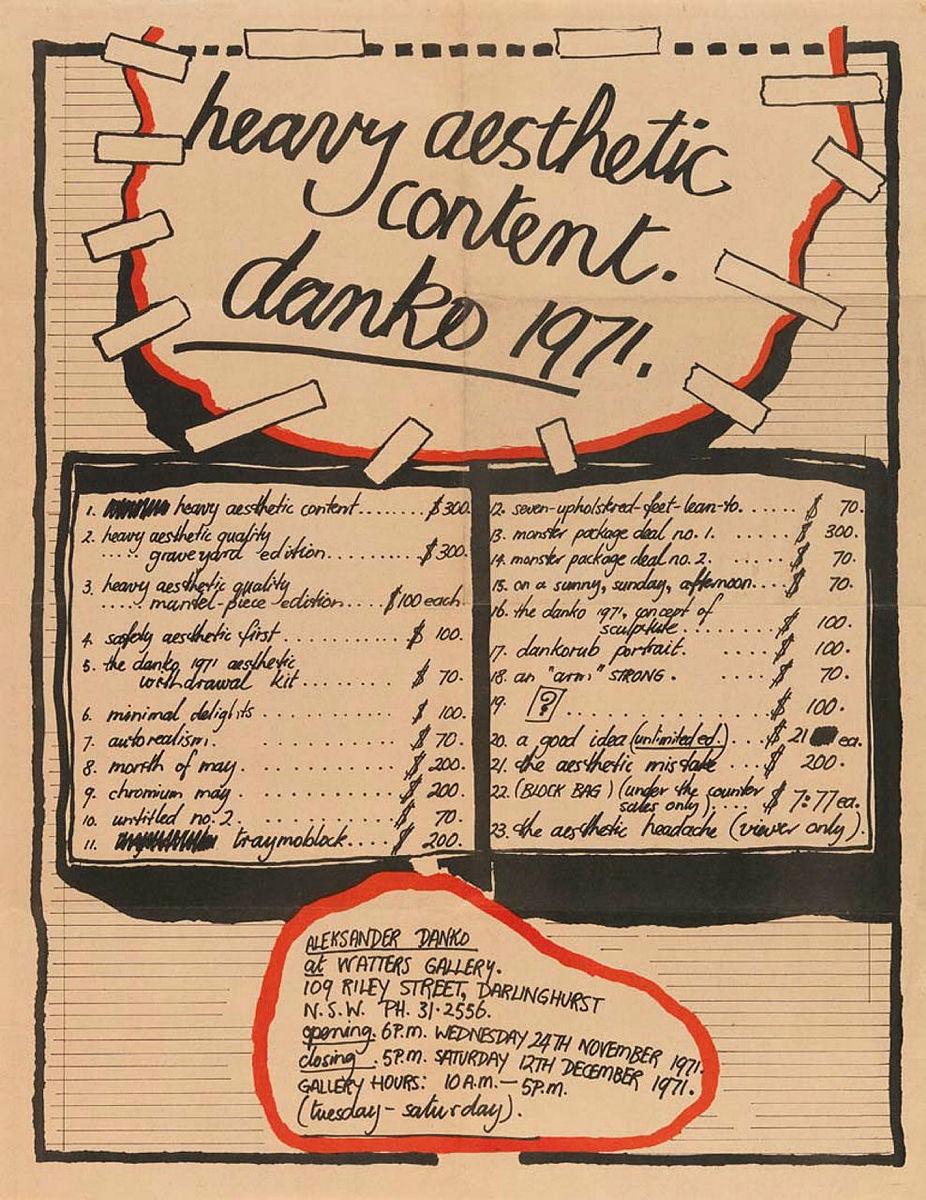 heavy aesthetic
content.
danko 1971.
1. heavy aesthetic content........ $300.
2. heavy aesthetic quality
..... graveyard edition......... $300.
3. heavy aesthetic quality
..... mantel-piece edition.... $100 each.
4. safely aesthetic first ............ $ 100.
5. the danko 1971 aesthetic
withdrawal kit........ $ 70.
6. minimal delights .......... $ 100.
7. autorealism. .......... $ 70.
8. month of may. .......... $ 200.
9. chromium may. .......... $ 200.
10. untitled no. 2. .......... $ 70.
11. traymoblock..... $ 200.
12. seven-upholstered-feet-lean-to. ..... $ 70.
13. monster package deal no. 1. ..... $ 300.
14. monster package deal no. 2. ..... $ 70.
15. on a sunny, sunday, afternoon.... $ 70.
16. the danko 1971, concept of
sculpture........ $ 100.
17. dankorub portrait. ..... $ 100.
18. an "arm" STRONG. ..... $ 70.
19. ? .............. $ 100.
20. a good idea (unlimited ed.)... $ 21 ea.
21. the aesthetic mistake .... $ 200.
22. (BLOCK BAG) (under the counter
sales only).... $ 7:77 ea.
23. the aesthetic headache (viewer only).
ALEKSANDER DANKO
at WATTERS GALLERY.
109 RILEY STREET, DARLINGHURST
N.S.W. PH. 31·2556.
opening. 6P.m. WEDNESDAY 24TH NOVEMBER 1971.
closing .5P.m. SATURDAY 12TH DECEMBER 1971.
GALLERY HOURS: 10 A.m.—5P.m.
(tuesday - saturday).